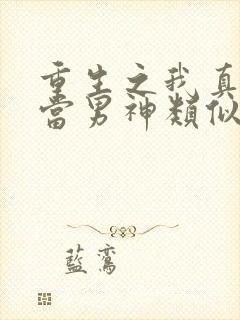 重生之我真
當男神類似
藍鸞